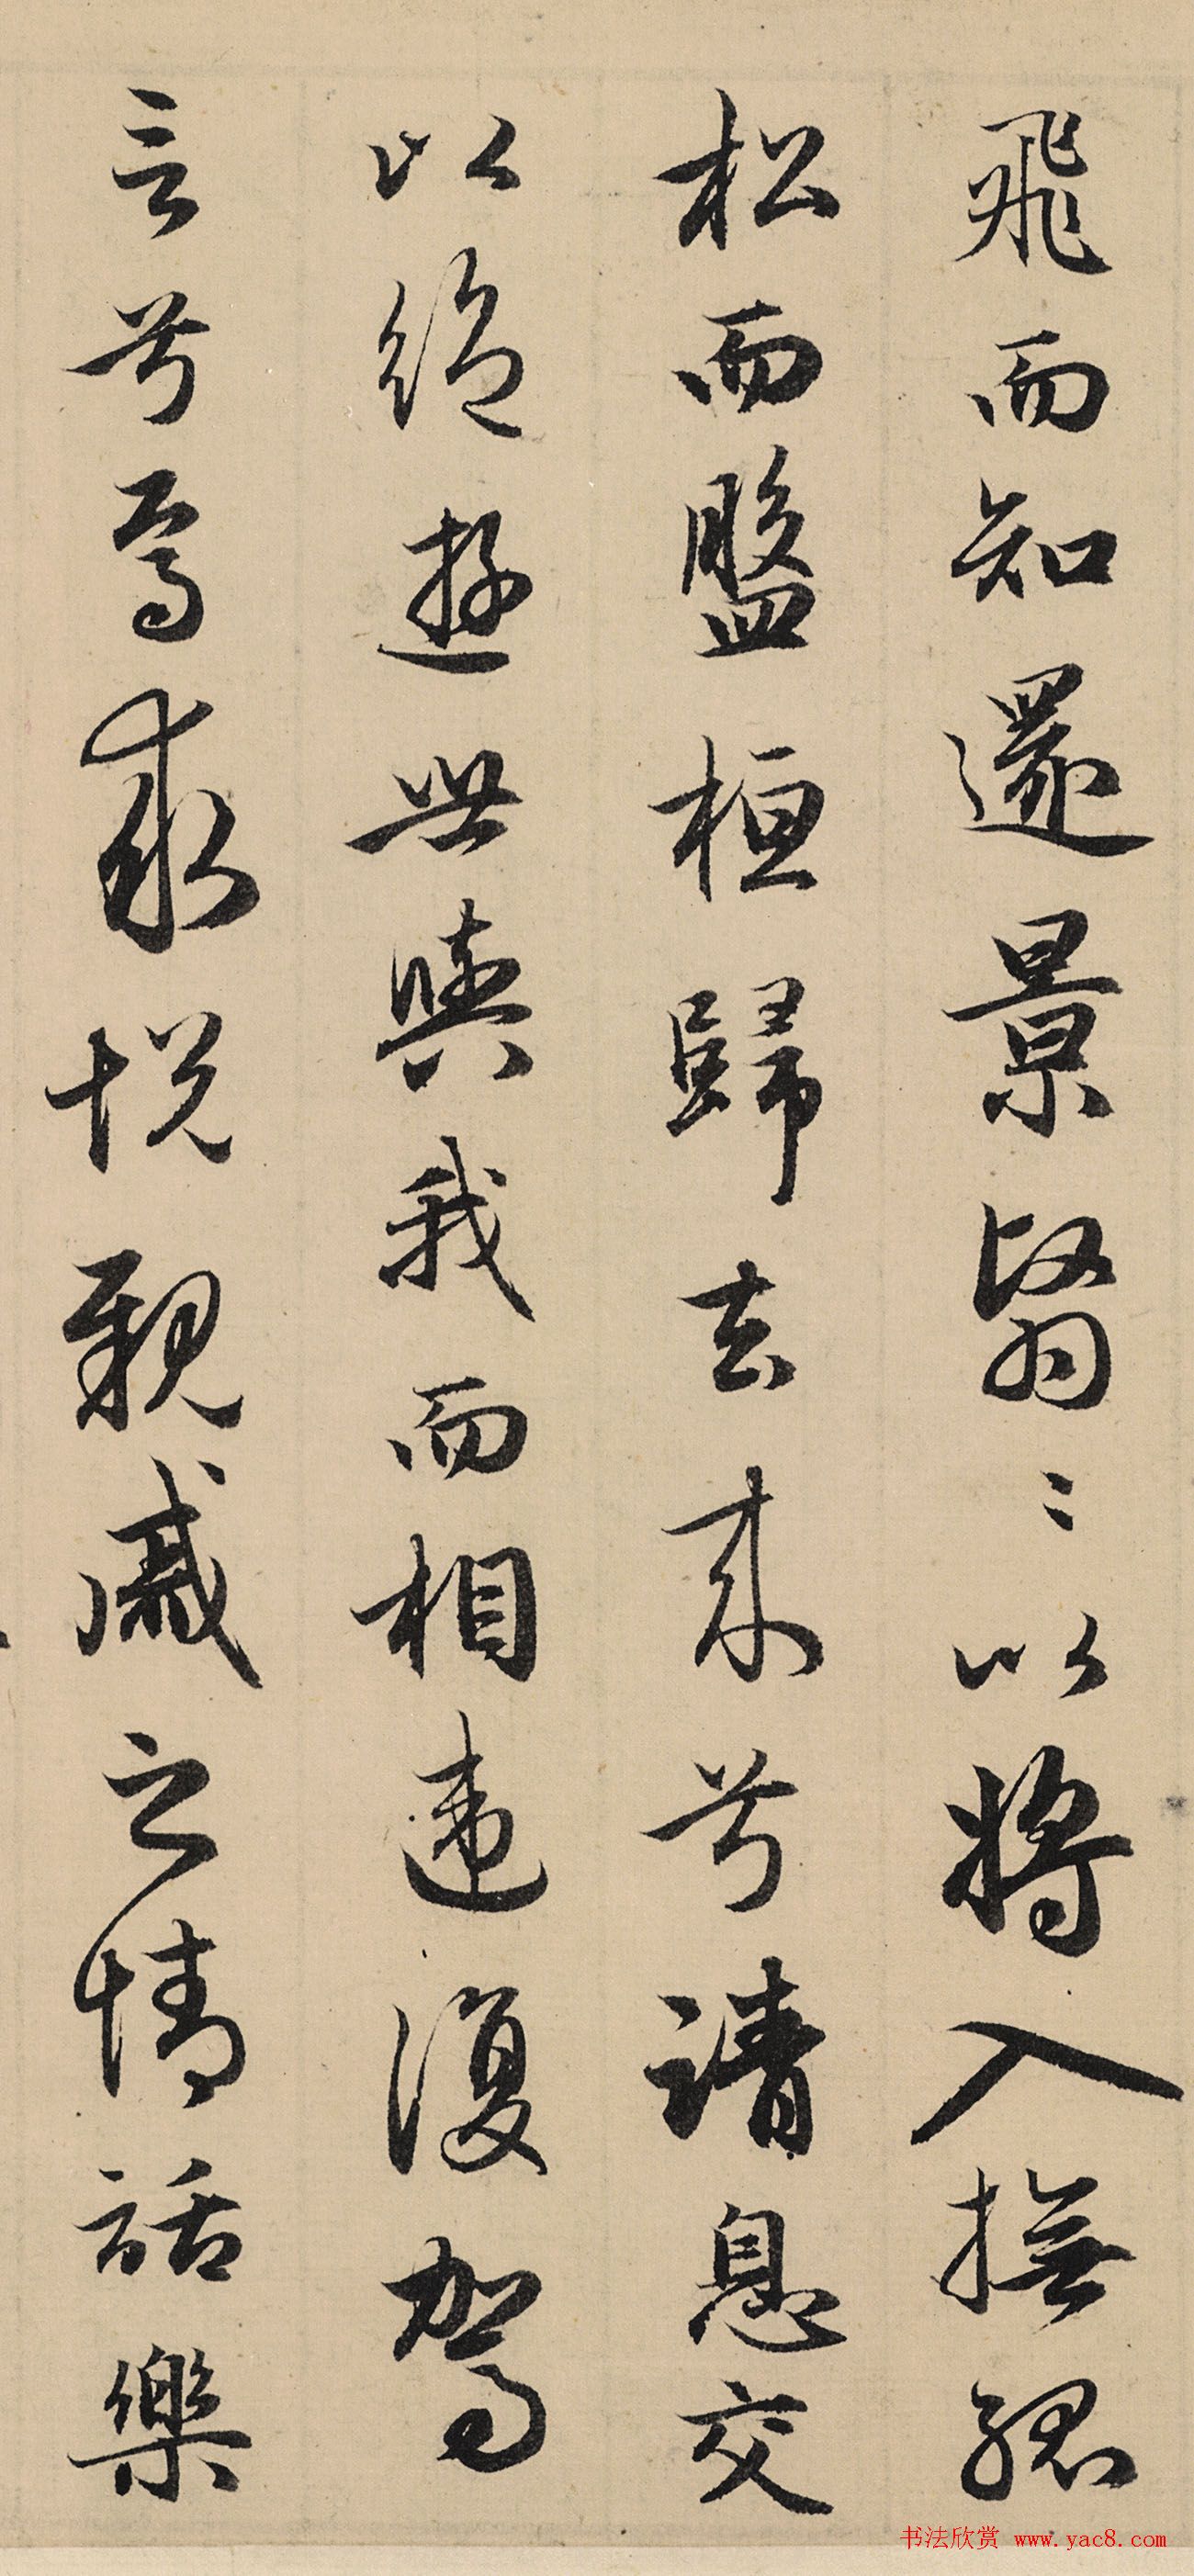 飛而知還景翳〻以将入撫孤
松而盤桓歸去来兮請息交
以絶遊世與我而相違復駕
言兮焉求悦親戚之情話樂
书法欣赏 www.yac8.com